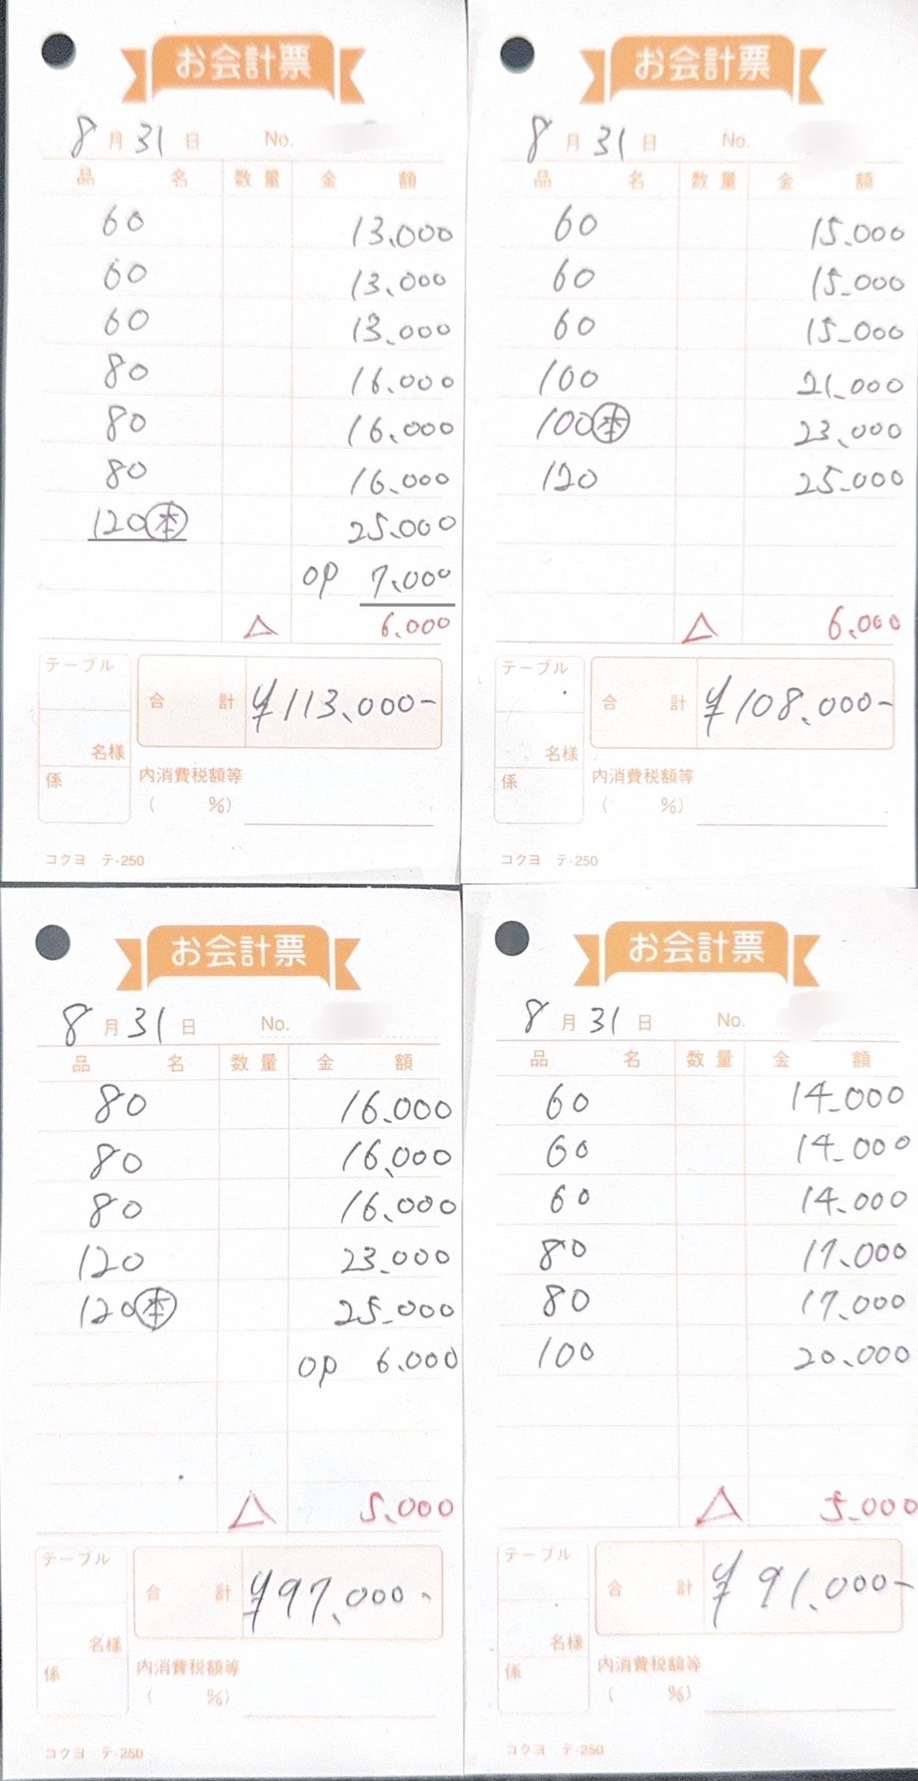 お会計票
8月31日 No.
品名 数量 金額
60 13.000
60 13.000
60 13.000
80 16.000
80 16.000
80 16.000
120㊍ 25.000
op 7.000
△ 6.000
テーブル
名様
係
合計 ¥113.000-
内消費税額等
( %)
コクヨ テ-250
お会計票
8月31日 No.
品名 数量 金額
60 15.000
60 15.000
60 15.000
100 21.000
100本 23.000
120 25.000
△ 6.000
テーブル
名様
係
合計 ¥108.000-
内消費税額等
( %)
コクヨ テ-250
お会計票
8月31日 No.
品名 数量 金額
80 16.000
80 16.000
80 16.000
120 23.000
120本 25.000
op 6.000
△ 5.000
テーブル
名様
係
合計 ¥97.000-
内消費税額等
( %)
コクヨ テ-250
お会計票
8月31日 No.
品名 数量 金額
60 14.000
60 14.000
60 14.000
80 17.000
80 17.000
100 20.000
△ 5.000
テーブル
名様
係
合計 ¥91.000-
内消費税額等
( %)
コクヨ テ-250